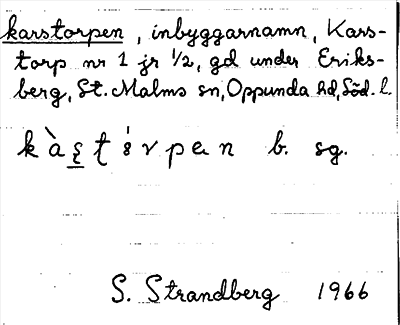 karstorpen, inbyggarnamn, Kars-
torp nr 1 jr 1/2, gd under Eriks-
berg, St. Malms sn, Oppunda hd, Söd. l.
b. sg.
S. Strandberg 1966